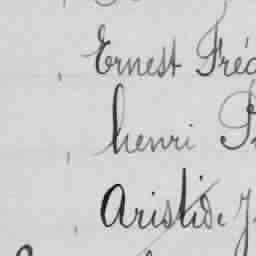 Ernest Fréd
henri P
Aristide J